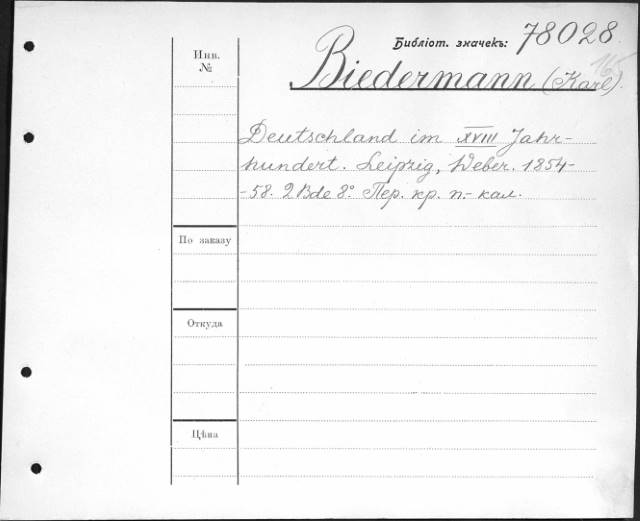 Библіот. значекъ: 78028
Инв.
№
Biedermann (Karl).
Deutschland im XVIII Jahr-
hundert. Leipzig, Weber. 1854-
-58. 2 Bde 8° Пер. кр. п.- кал.
По заказу
Откуда
Цѣна